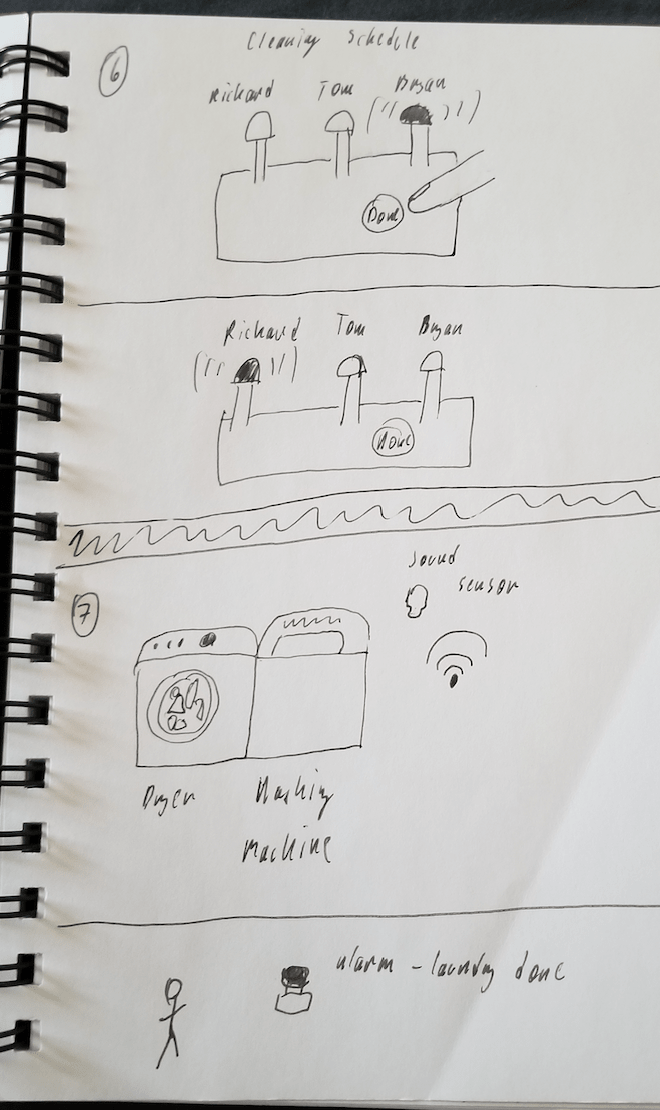 Cleaning Schedule
6
Richard Tom Bryan
Done
Richard Tom Bryan
Done
7
sound
sensor
Dryer Washing
Machine
alarm - laundry done